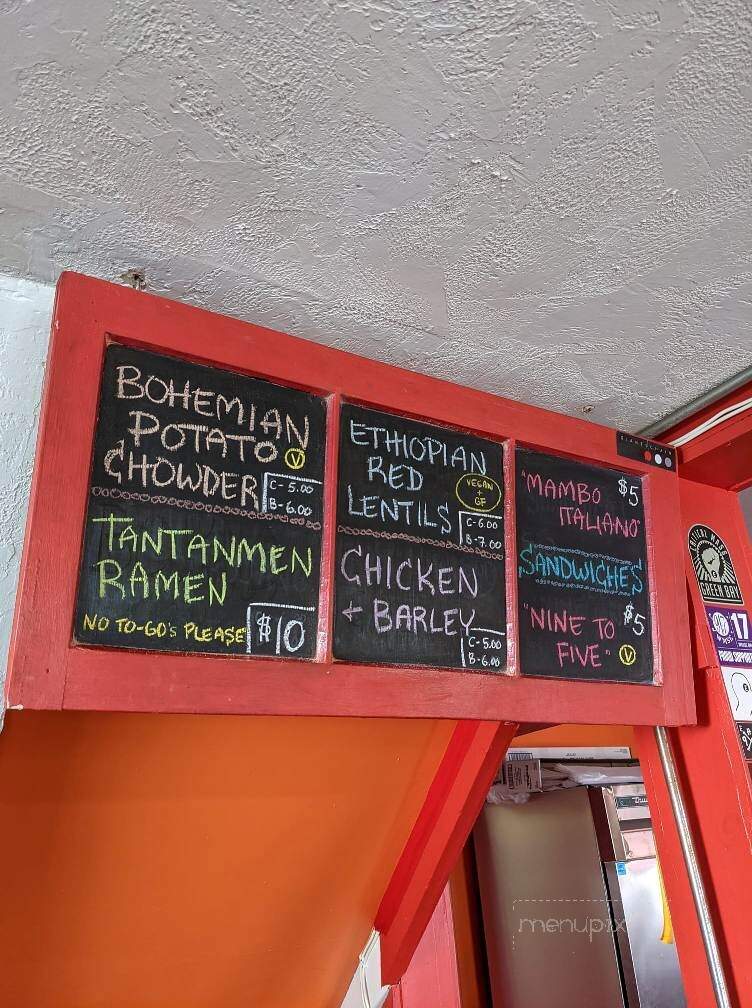 BOHEMIAN
POTATO V
CHOWDER
C-5.00
B-6.00
TANTANMEN
RAMEN
NO TO-GO's PLEASE
$10
ETHIOPIAN
RED
LENTILS
VEGAN
+
GF
C-6.00
B-7.00
CHICKEN
+ BARLEY
C-5.00
B-6.00
"MAMBO $5
ITALIANO"
SANDWICHES
"NINE TO $5
FIVE" V
CRITICAL MASS
GREEN DAY
17
PROUD SUPPORT
menupix